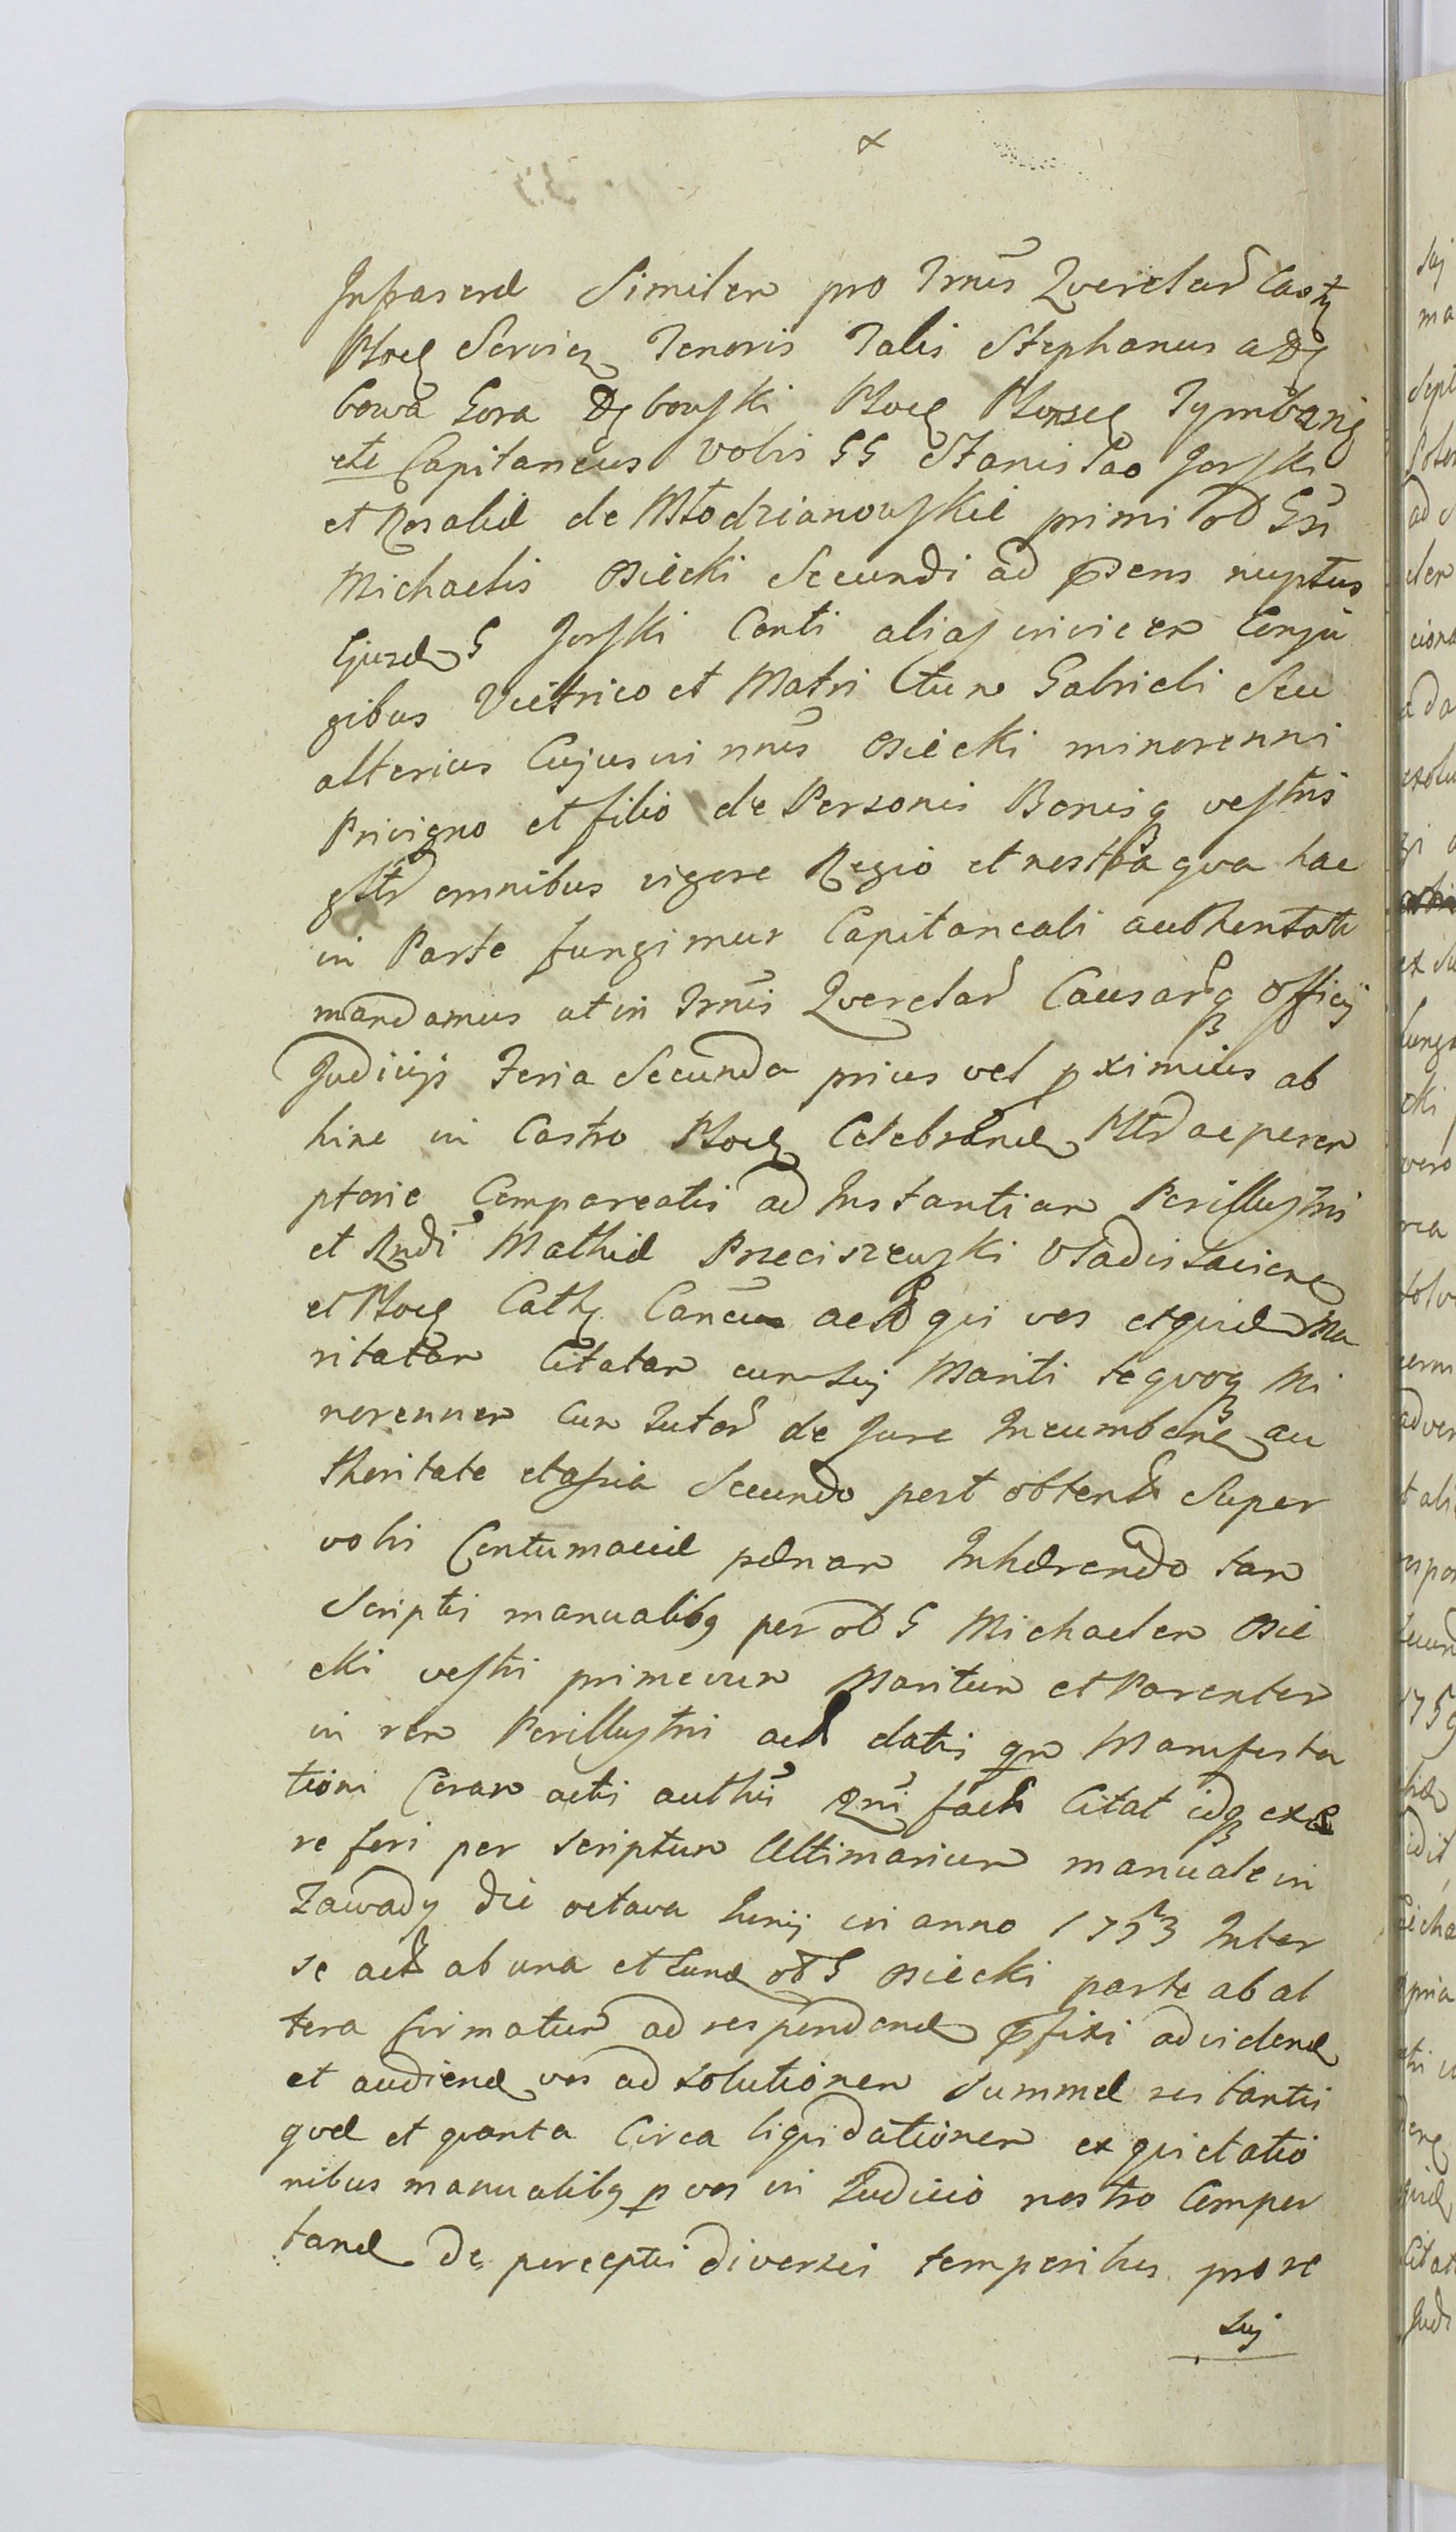 Infrascrae Similem pro Trnis Querelar Castr
Ploc Serviez Tenoris Talis Stephanus a Dę
bowa Gora Dębowski Ploc Plonsc Tymbarg
etc Capitaneus vobis GG Stanislao Gorski
et Rosaliae de Młodzianowskie primi od Gsi
Michaelis Osiecki Secundi ad pns nuptus
Ejusd G Gorski Conti alias invicem Conju
gibus Vietrico et Matri tum Gabrieli Seu
alterius Cujusvi nnis Osiecki minorenni
Privigno et filio de Personis Bonisq vestris
gltr omnibus vigore Regio et nostra qva hac
in Parte fungimur Capitaneali authentate
mandamus ut in Trnis Querelar Causarq Officij
Judicijs Feria Secunda prius vel pximius ab
hinc in Castro Ploc Celebrand Pltr ac perem
ptorie Compareatis ad Instantiam Perillustris
et Rndi Mathiae Przeciszewski Vladislavien
et Ploc Cath Canci act qui vos et quid Ma
ritatam Citatam cum sui Mariti te quoq Mi
norennem cum Tutor de Jure Incumben au
thoritate et assia Secundo post obtent Super
vobis Contumaciae paenam Inhaerendo tam
Scriptis manualibq per od G Michaelem Osie
cki vestri primevum Maritum et Parentem
in rem Perillustris act datis qm Manifesta
tioni Coram actis authis Qni fact Citat idq ex
re feri per Scriptum Ultimarium manuale in
Zawady die octava Junij in anno 1753 Inter
se act ab una et tunc od G Osiecki parte ab al
tera firmatum ad respondend pfixi ad vidend
et audiend vos ad solutionem Summae restantis
quae et quanta Circa liquidationem ex quietatio
nibus manualibq p vos in Judicio nostro Compor
tand de perceptis diversis temporibus pro re
sui